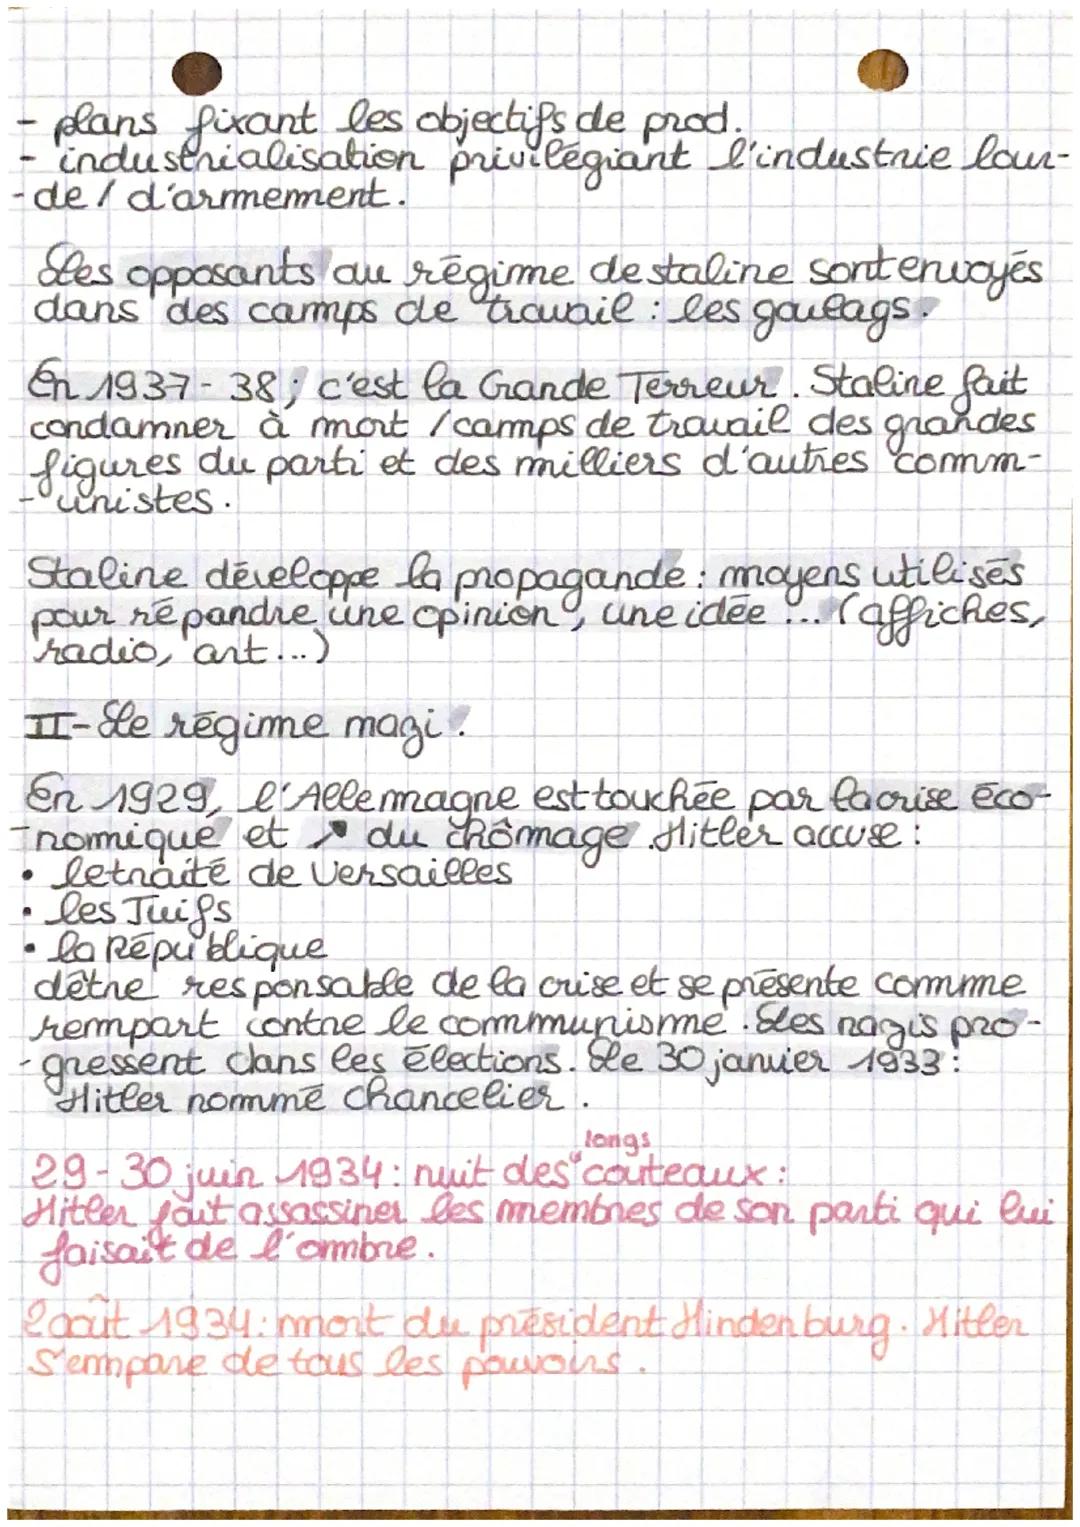 - plans fixant les objectifs de prod.
- industrialisation privilégiant l'industrie lour-
-de / d'armement.
Les opposants au régime de staline sont envoyés
dans des camps de travail : les goulags.
En 1937-38, c'est la Grande Terreur. Staline fait
condamner à mort / camps de travail des grandes
figures du parti et des milliers d'autres comm-
-unistes.
Staline développe la propagande : moyens utilisés
pour répandre une opinion, une idée ... (affiches,
radio, art ...)
II- Le régime nazi.
En 1929, l'Allemagne est touchée par la crise éco-
-nomique et ↗ du chômage. Hitler accuse :
• le traité de Versailles
• les Juifs
• la République
d'être responsable de la crise et se présente comme
rempart contre le communisme. Les nazis pro-
-gressent dans les élections. Le 30 janvier 1933 :
Hitler nommé chancelier.
29-30 juin 1934 : nuit des longs couteaux :
Hitler fait assassiner les membres de son parti qui lui
faisait de l'ombre.
2 août 1934 : mort du président Hindenburg. Hitler
s'empare de tous les pouvoirs.